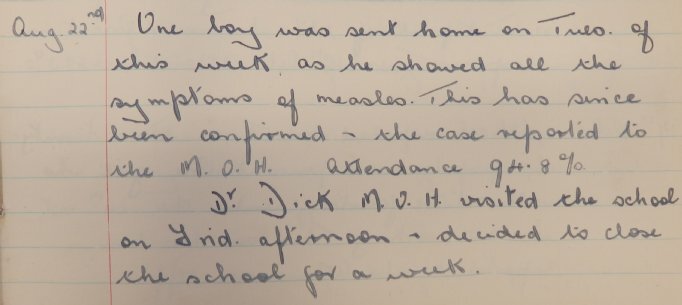 Aug. 22nd One boy was sent home on Tues. of
this week, as he showed all the
symptoms of measles. This has since
been confirmed - the case reported to
the M. O. H. Attendance 94.8%
Dr. Dick M. O. H. visited the school
on Frid. afternoon - decided to close
the school for a week.